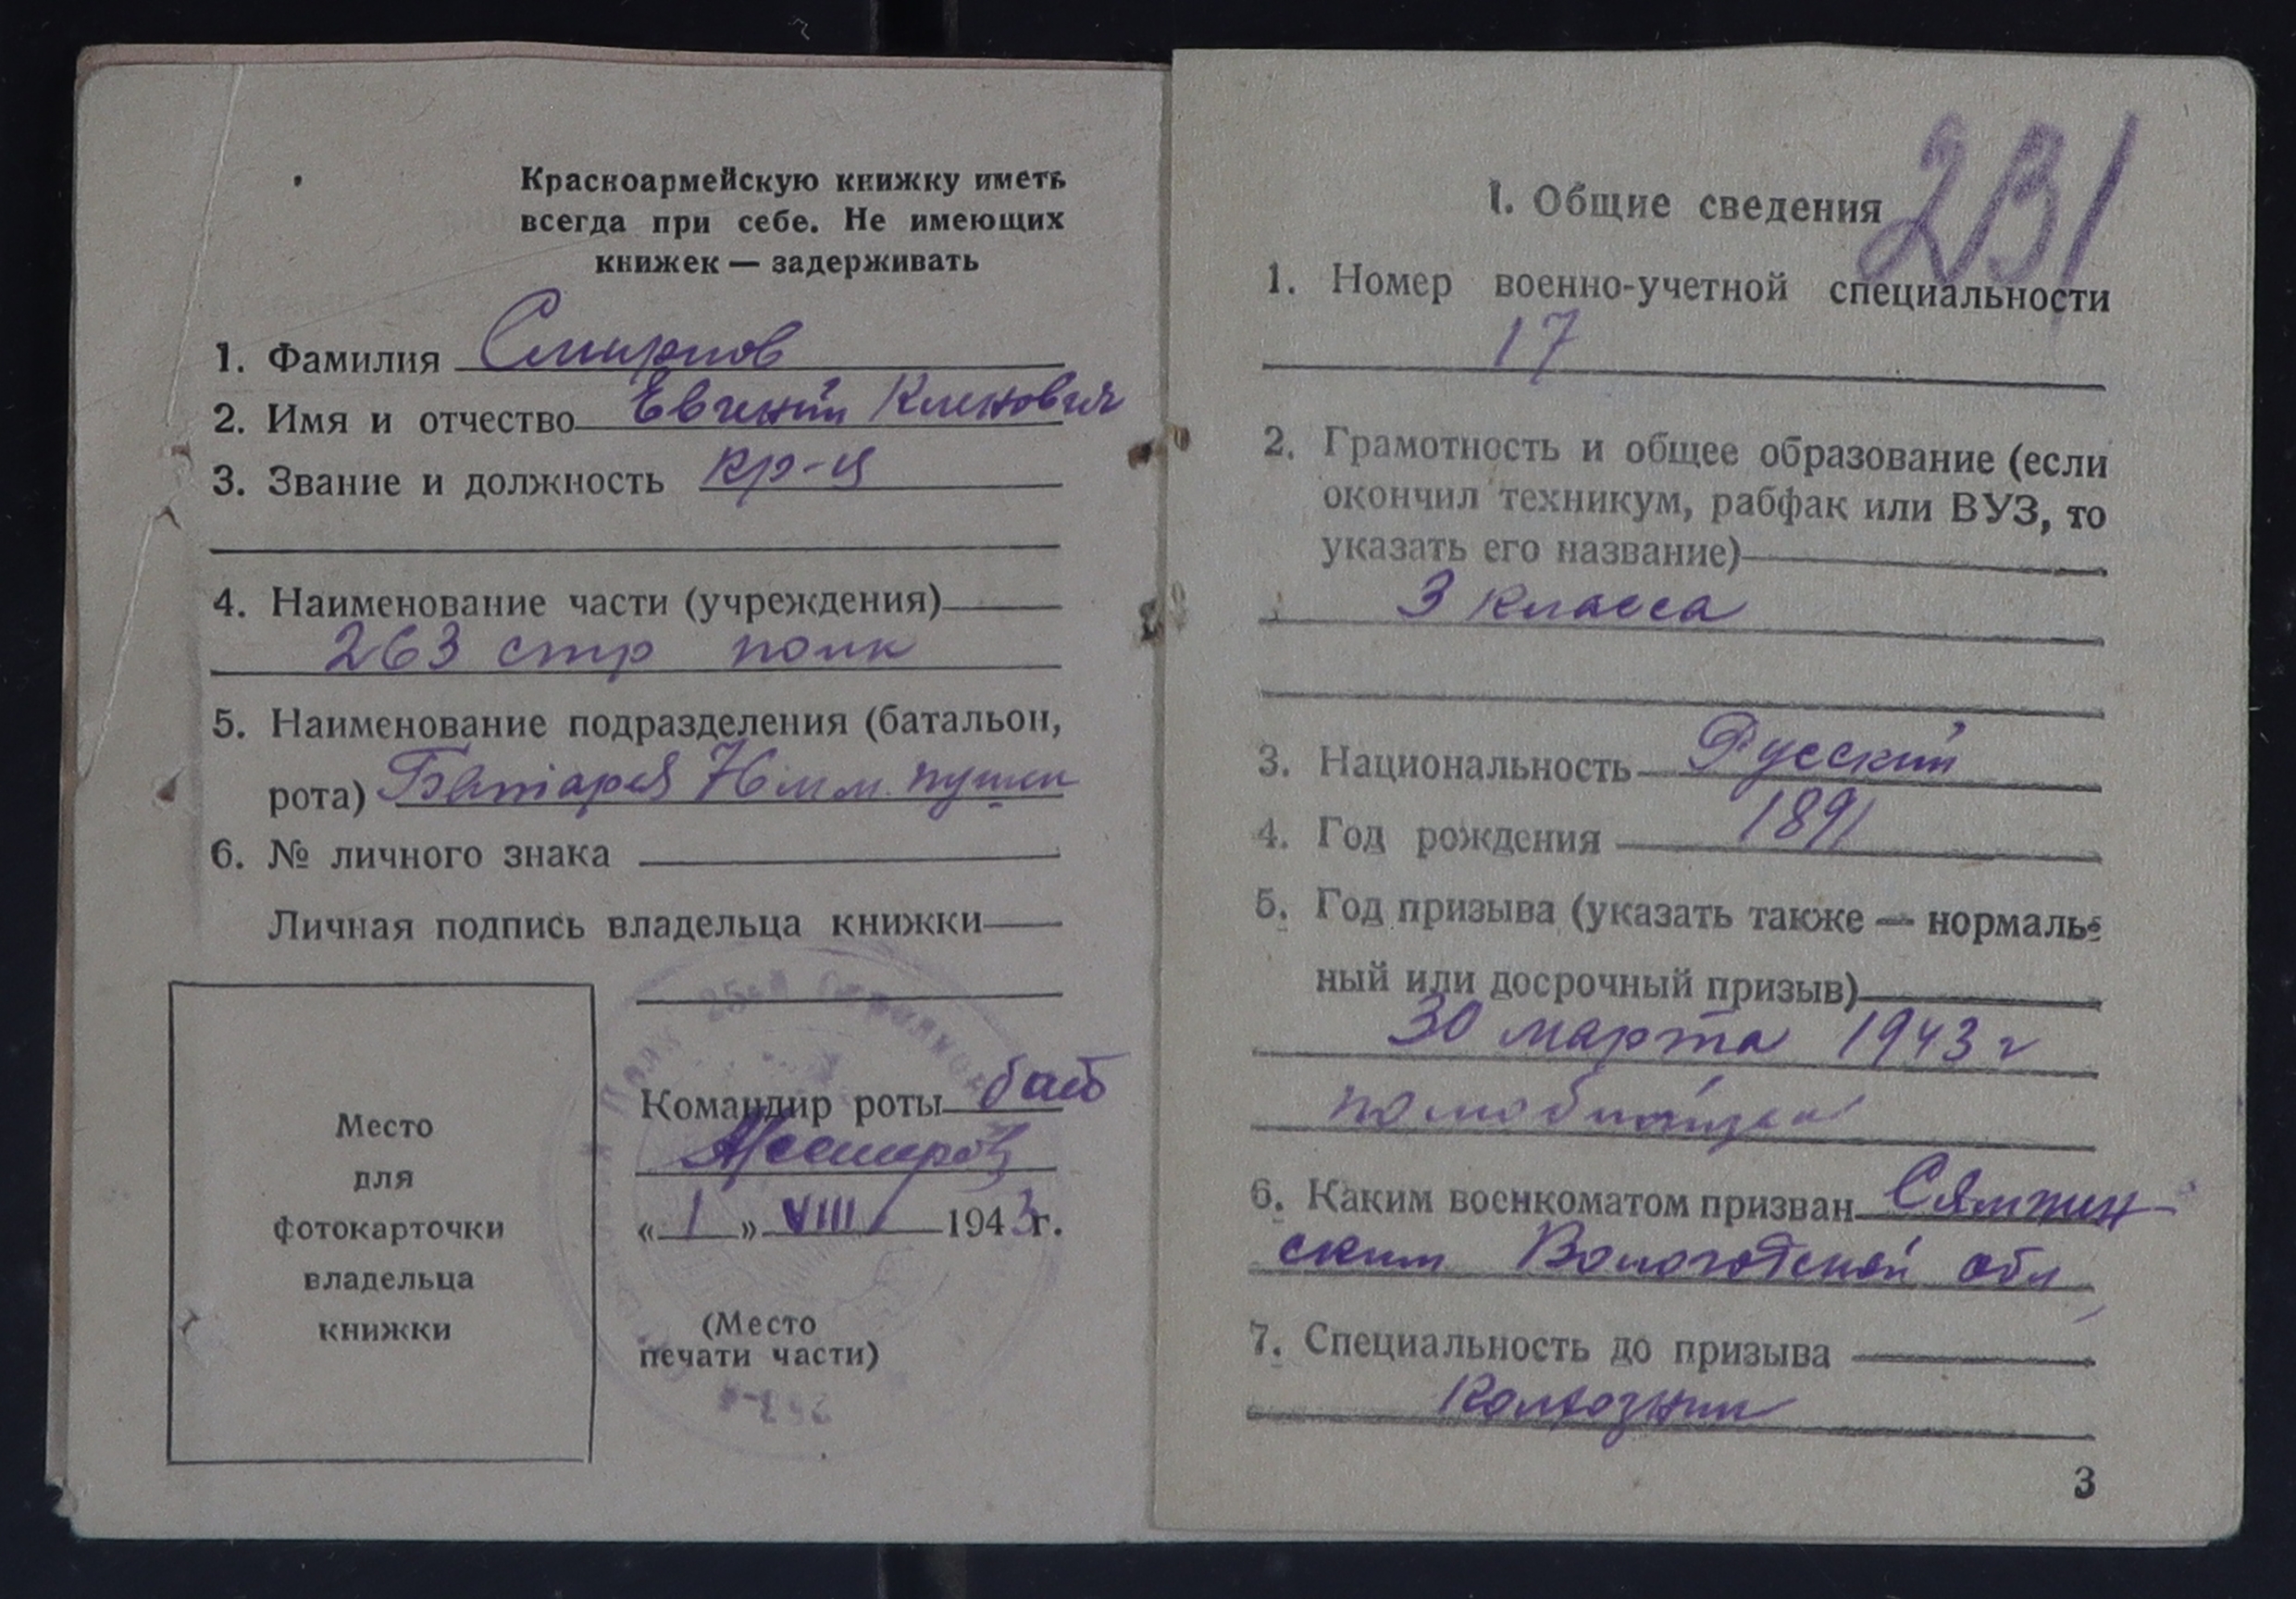 Красноармейскую книжку иметь
всегда при себе. Не имеющих
книжек — задерживать
1. Фамилия Смирнов
2. Имя и отчество Евгений
3. Звание и должность кр-ц
4. Наименование части (учреждения)
263 стр полк
5. Наименование подразделения (батальон,
рота) Батарея 76 мм. пушек
6. № личного знака
Личная подпись владельца книжки
Место
для
фотокарточки
владельца
книжки
Командир роты бат
«1» VIII 1943 г.
(Место
печати части)
231
1. Общие сведения
1. Номер военно-учетной специальности
17
2. Грамотность и общее образование (если
окончил техникум, рабфак или ВУЗ, то
указать его название)
3 класса
3. Национальность Русский
4. Год рождения 1891
5. Год призыва (указать также — нормаль-
ный или досрочный призыв)
30 марта 1943 г
по мобилизации
6. Каким военкоматом призван Сямжен-
ским Вологодской обл
7. Специальность до призыва
Колхозник
3